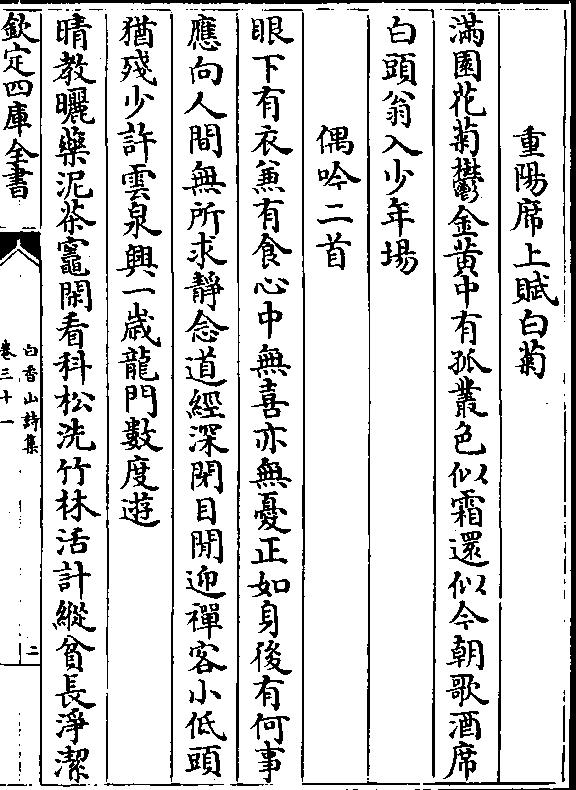 重陽席上賦白菊
滿園花菊鬱金黃中有孤叢色似霜還似今朝歌酒席
白頭翁入少年場
偶吟二首
眼下有衣兼有食心中無喜亦無憂正如身後有何事
應向人間無所求靜念道經深閉目閒迎禪客小低頭
猶殘少許雲泉興一歲龍門數度遊
晴教曬藥泥茶竈閑看科松洗竹林活計縱貧長淨潔
欽定四庫全書
白香山詩集
卷三十一
二